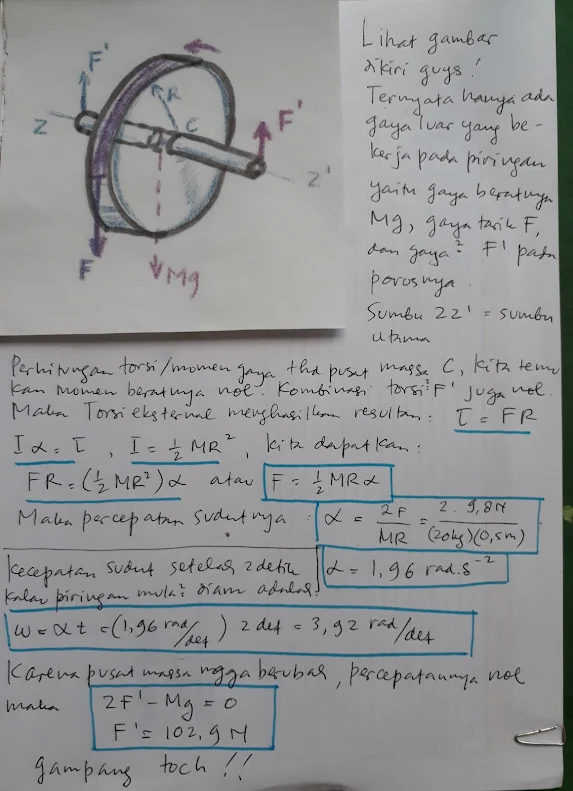 Lihat gambar
dikiri guys!
Ternyata hanya ada
gaya luar yang be-
kerja pada piringan
yaitu gaya beratnya
Mg, gaya tarik F,
dan gaya² F' pada
porosnya.
Sumbu ZZ' = sumbu
utama
F'
R
Z
C
F'
Z'
F
Mg
Perhitungan torsi/momen gaya thd pusat massa C, kita temu
kan momen beratnya nol. Kombinasi torsi² F' juga nol.
Maka Torsi eksternal menghasilkan resultan: τ = FR
Iα = τ, I = ½ MR², kita dapatkan:
FR = (½ MR²) α atau F = ½ MRα
Maka percepatan sudutnya: α = 2F/MR = 2. 9,8N/(20kg)(0,5m)
Kecepatan sudut setelah 2 detik α = 1,96 rad.s⁻²
kalau piringan mula² diam adalah:
ω = αt = (1,96 rad/det) 2 det = 3,92 rad/det
Karena pusat massa ngga berubah, percepatannya nol
maka 2F' - Mg = 0
F' = 102,9 N
gampang toch!!